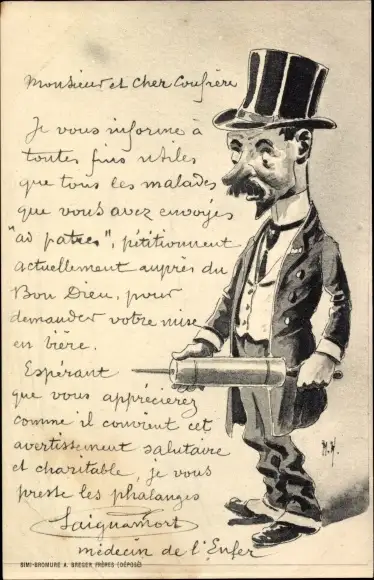 Monsieur et Cher Confrère
Je vous informe à
toutes fins utiles
que tous les malades
que vous avez envoyés
"ad patres", pétitionnent
actuellement auprès du
Bon Dieu, pour
demander votre mise
en bière.
Espérant
que vous apprécierez
comme il convient cet
avertissement salutaire
et charitable, je vous
presse les phalanges
Saignamort
médecin de l'Enfer
H.M.
SIMI-BROMURE A. BREGER FRÈRES (DÉPOSÉ)